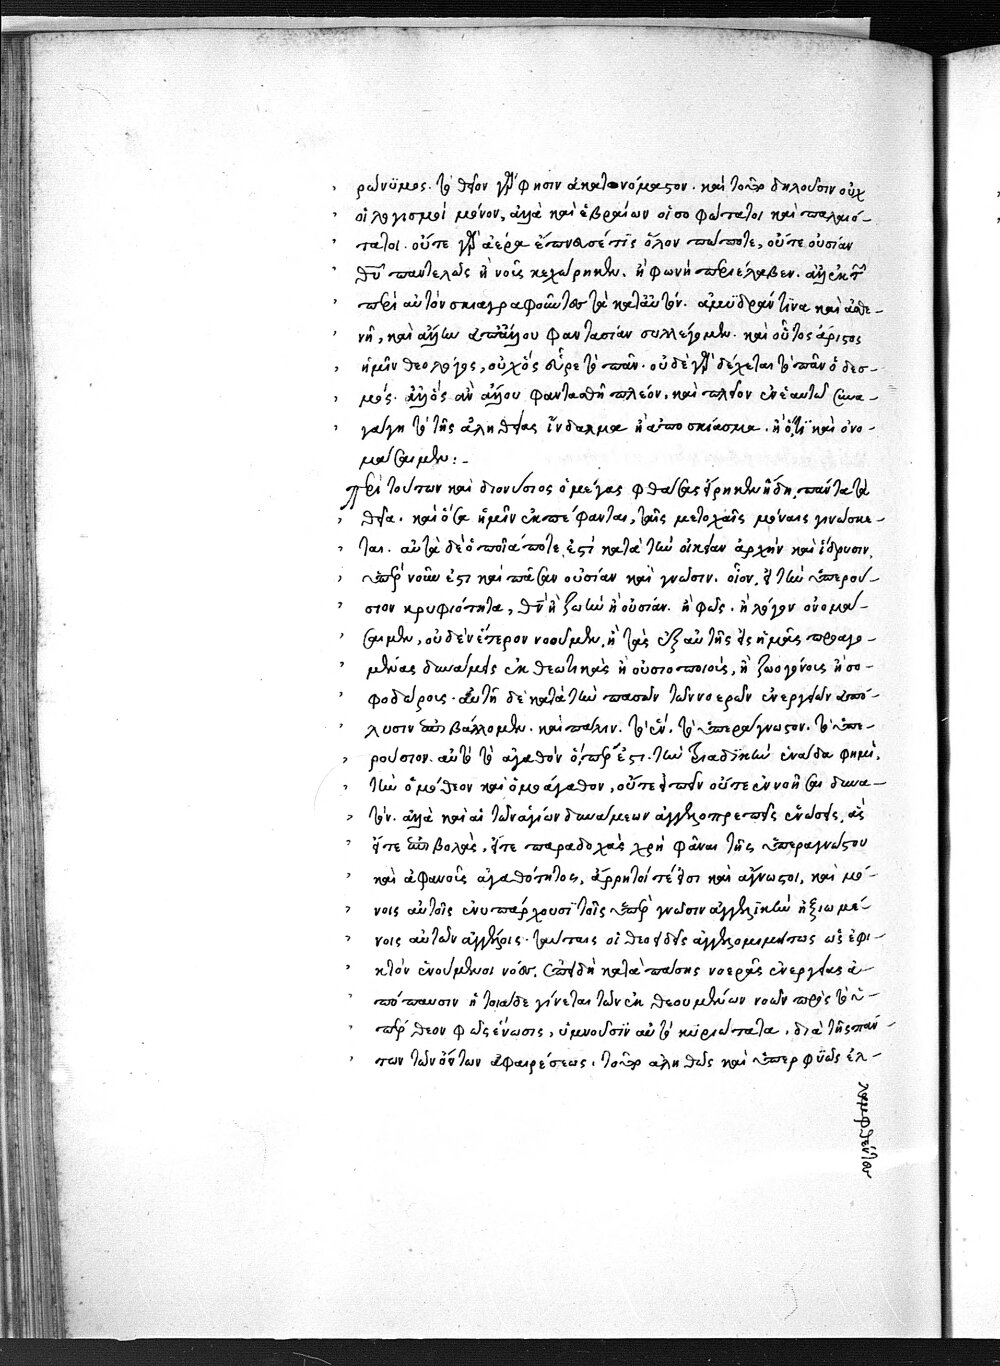 ρώνυμος. τὸ θεῖον γὰρ φησιν ἀκατονόμαστον. καὶ τοῦτο δηλοῦσιν οὐχ
οἱ λογισμοὶ μόνον, ἀλλὰ καὶ ἑβραίων οἱ σοφώτατοι καὶ παλαιό-
τατοι. οὔτε γὰρ ἀέρα ἔπνευσέ τις ὅλον πώποτε, οὔτε οὐσίαν
θεοῦ παντελῶς ἢ νοῦς κεχώρηκεν. ἢ φωνὴ περιέλαβεν. ἀλλ' ἐκ τῶν
περὶ αὐτὸν σκιαγραφοῦντες τὰ κατ' αὐτόν. ἀμυδράν τινα καὶ ἀσθε-
νῆ, καὶ ἄλλην ἀπ' ἄλλου φαντασίαν συλλέγομεν. καὶ οὗτος ἄριστος
ἡμῖν θεολόγος, οὐχ ὃς εὗρε τὸ πᾶν. οὐδὲ γὰρ δέχεται τὸ πᾶν ὁ δεσ-
μός. ἀλλ' ὃς ἂν ἄλλου φαντασθῇ πλέον, καὶ πλεῖον ἐν ἑαυτῷ συνα-
γάγῃ τὸ τῆς ἀληθείας ἴνδαλμα ἢ ἀποσκίασμα. ἢ ὅ,τι καὶ ὀνο-
μάσαιμεν:-
Περὶ τούτων καὶ διονύσιος ὁ μέγας φθάσας εἴρηκεν ἤδη. πάντα τὰ
θεῖα. καὶ ὅσα ἡμῖν ἐκπέφανται, ταῖς μετοχαῖς μόναις γινώσκε-
ται. αὐτὰ δὲ ὁποῖά ποτέ ἐστι κατὰ τὴν οἰκείαν ἀρχὴν καὶ ἵδρυσιν,
ὑπὲρ νοῦν ἐστι καὶ πᾶσαν οὐσίαν καὶ γνῶσιν. οἷον, εἰ τὴν ὑπερού-
σιον κρυφιότητα, θεὸν ἢ ζωὴν ἢ οὐσίαν. ἢ φῶς. ἢ λόγον ὀνομά-
σαιμεν, οὐδὲν ἕτερον νοοῦμεν, ἢ τὰς ἐξ αὐτῆς εἰς ἡμᾶς προαγο-
μένας δυνάμεις ἐκθεωτικὰς ἢ οὐσιοποιοὺς, ἢ ζωογόνους ἢ σο-
φοδώρους. αὐτῇ δὲ κατὰ τὴν πασῶν τῶν νοερῶν ἐνεργειῶν ἀπό-
λυσιν ἐπιβάλλομεν. καὶ πάλιν. τὸ ἕν. τὸ ὑπεράγνωστον. τὸ ὑπε-
ρούσιον. αὐτὸ τὸ ἀγαθὸν ὅπερ ἐστι. τὴν τριαδικὴν ἑνάδα φημὶ,
τὴν ὁμόθεον καὶ ὁμοάγαθον, οὔτε εἰπεῖν οὔτε ἐννοῆσαι δυνα-
τόν. ἀλλὰ καὶ αἱ τῶν ἁγίων δυνάμεων ἀγγελοπρεπεῖς ἑνώσεις, ἃς
εἴτε ἐπιβολὰς, εἴτε παραδοχὰς χρὴ φάναι τῆς ὑπεραγνώστου
καὶ ἀφανοῦς ἀγαθότητος, ἄρρητοί τέ εἰσι καὶ ἄγνωστοι, καὶ μό-
νοις αὐτοῖς ἐνυπάρχουσι τοῖς ὑπὲρ γνῶσιν ἀγγελικὴν ἠξιωμέ-
νοις αὐτῶν ἀγγέλοις. ταύταις οἱ θεοειδεῖς ἀγγελομιμήτως ὡς ἐφι-
κτὸν ἑνούμενοι νόες. ἐπειδὴ κατὰ πάσης νοερᾶς ἐνεργείας ἀ-
πόπαυσιν ἡ τοιάδε γίνεται τῶν ἐκθεουμένων νοῶν πρὸς τὸ ὑ-
πέρθεον φῶς ἕνωσις, ὑμνοῦσιν αὐτὸ κυριώτατα, διὰ τῆς πάν-
των τῶν ὄντων ἀφαιρέσεως. τοῦτο ἀληθῶς καὶ ὑπερφυῶς ἐλ-
λαμφθέντες